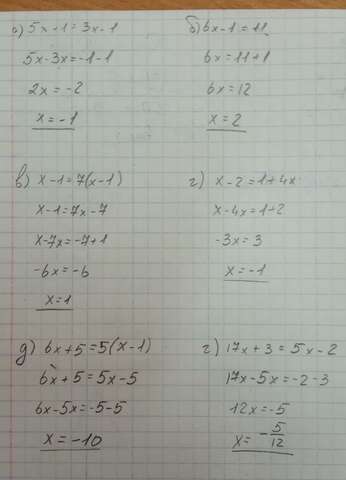 а) 5x+1=3x-1
5x-3x=-1-1
2x=-2
x=-1
б) 6x-1=11
6x=11+1
6x=12
x=2
в) x-1=7(x-1)
x-1=7x-7
x-7x=-7+1
-6x=-6
x=1
г) x-2=1+4x
x-4x=1+2
-3x=3
x=-1
д) 6x+5=5(x-1)
6x+5=5x-5
6x-5x=-5-5
x=-10
г) 17x+3=5x-2
17x-5x=-2-3
12x=-5
x=-5/12